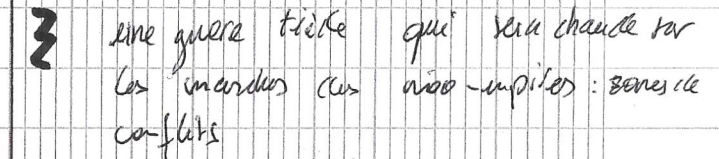 une guerre tiède qui sera chaude sur
les marches des néo-empires : zones de
conflits